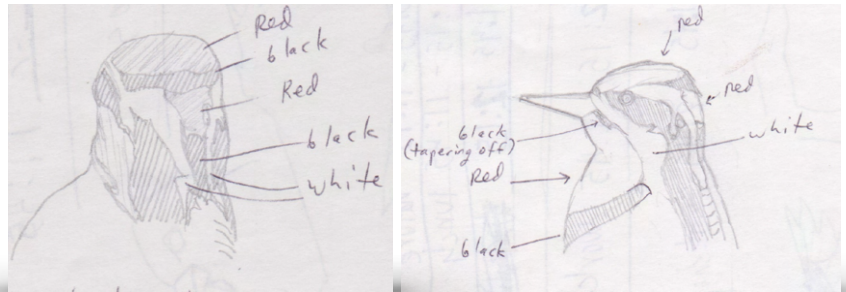 Red
black
Red
black
white
red
red
white
black
(tapering off)
Red
black